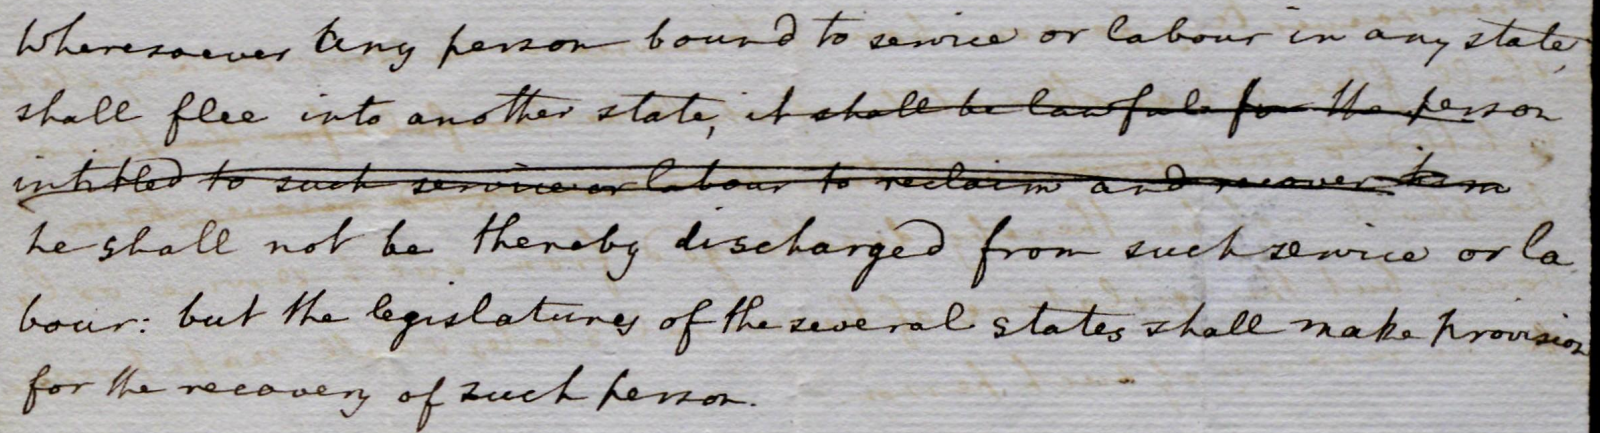 Wheresoever any person bound to service or labour in any state,
shall flee into another state, it shall be lawful for the person
intitled to such service or labour to reclaim and recover him
he shall not be thereby discharged from such service or la
bour: but the legislatures of the several states shall make provision
for the recovery of such person.